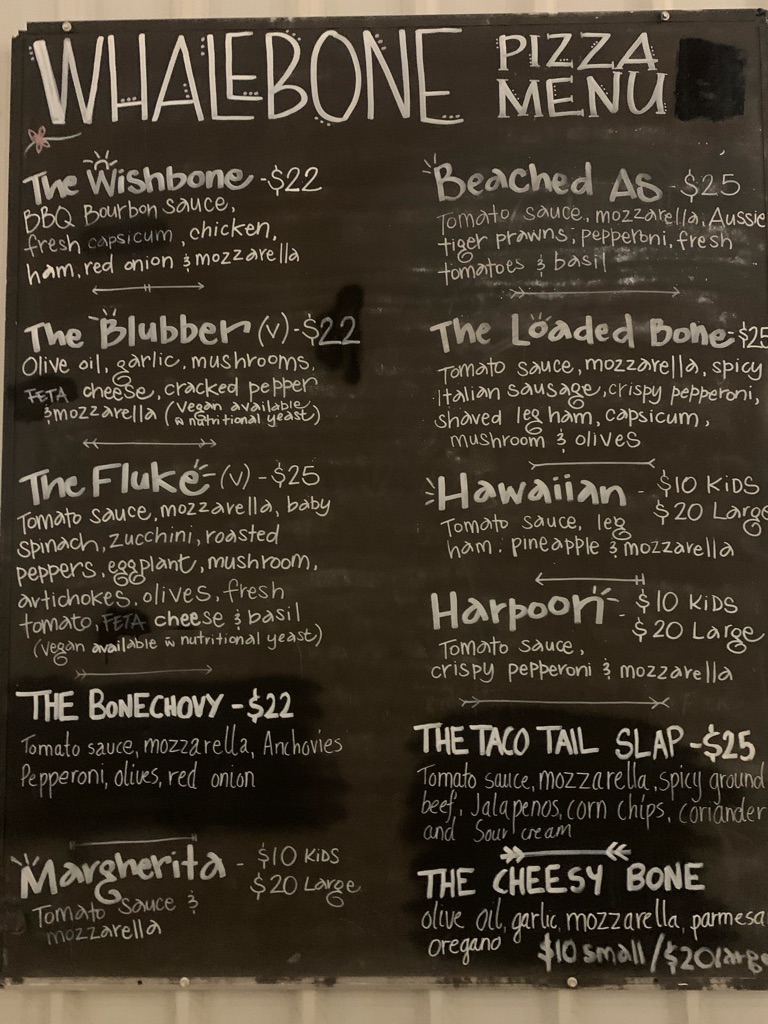 WHALEBONE PIZZA MENU
The Wishbone - $22
BBQ Bourbon sauce,
fresh capsicum, chicken,
ham, red onion & mozzarella
The Blubber (v) - $22
Olive oil, garlic, mushrooms,
FETA cheese, cracked pepper
& mozzarella (Vegan available
w nutritional yeast)
The Fluke - (v) - $25
Tomato sauce, mozzarella, baby
spinach, zucchini, roasted
peppers, eggplant, mushroom,
artichokes, olives, fresh
tomato, FETA cheese & basil
(Vegan available w nutritional yeast)
THE BONECHOVY - $22
Tomato sauce, mozzarella, Anchovies
Pepperoni, olives, red onion
Margherita - $10 KiDS
$20 Large
Tomato sauce &
mozzarella
Beached As - $25
Tomato sauce, mozzarella, Aussie
tiger prawns, pepperoni, fresh
tomatoes & basil
The Loaded Bone - $25
Tomato sauce, mozzarella, spicy
Italian sausage, crispy pepperoni,
shaved leg ham, capsicum,
mushroom & olives
Hawaiian - $10 KiDS
$20 Large
Tomato sauce, leg
ham, pineapple & mozzarella
Harpoon - $10 KiDS
$20 Large
Tomato sauce,
crispy pepperoni & mozzarella
THE TACO TAIL SLAP - $25
Tomato sauce, mozzarella, spicy ground
beef, Jalapenos, corn chips, coriander
and Sour cream
THE CHEESY BONE
olive oil, garlic, mozzarella, parmesa
oregano $10 small / $20 large